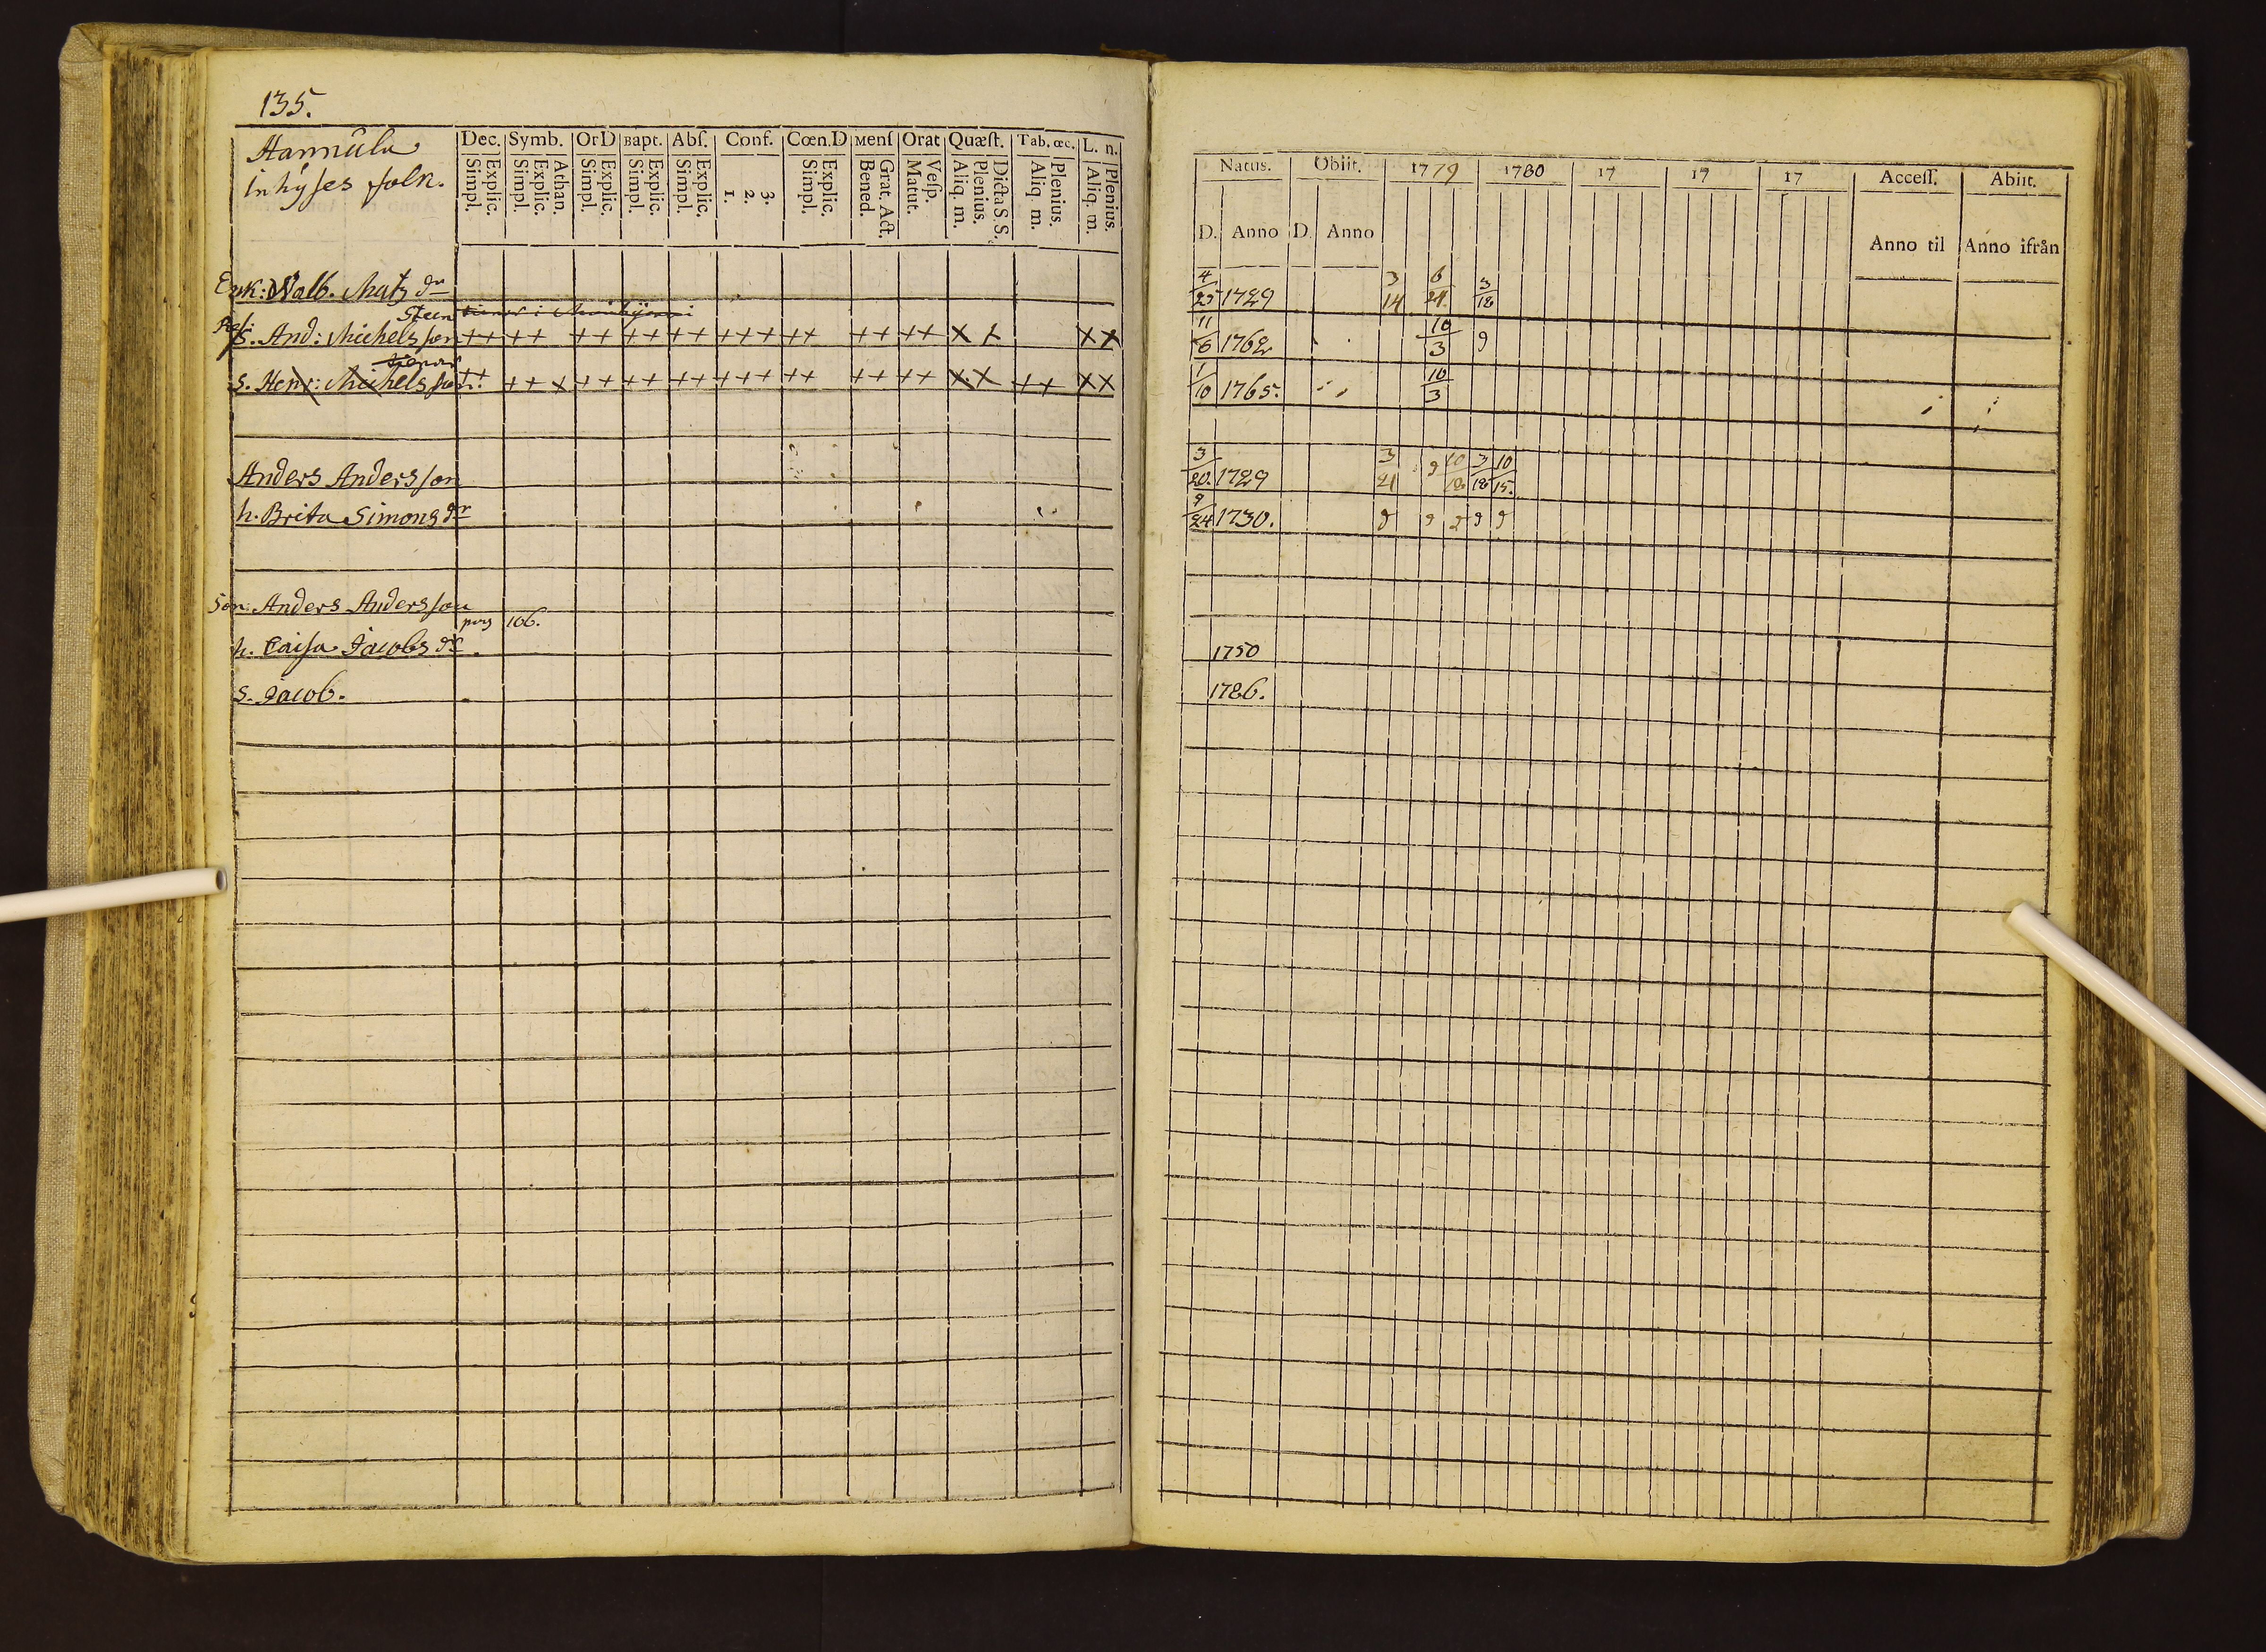 135.
Hannula
inhyses folk.
Dec. Symb. OrD Bapt. Abſ. Conf. Cœn.D Menſ Orat Quæſt. Tab. œc. L. n.
Simpl. Explic. Simpl. Explic. Athan. Simpl. Explic. Simpl. Explic. Simpl. Explic. 1. 2. 3. Simpl. Explic. Bened. Grat. Act. Matut. Veſp. Aliq. m. Plenius. Dicta S. S. Aliq. m. Plenius. Aliq. m. Plenius.
Natus. Obiit. 1779 1780 17 17 17 Acceſſ. Abiit.
D. Anno D. Anno Anno til Anno ifrån
Enk: Walb. Matz dr 4/25 1729 3/14 6/24 3/18
Steen
s. And: Michelsson ++ ++ ++ ++ ++ +++ ++ ++ ++ x x x x 11/6 1762 10/3 9
s. Henr: Michelsson ++ ++ x ++ ++ ++ +++ ++ ++ ++ x x ++ x x 1/10 1765. 10/3
Anders Andersson 3/20. 1729 3/21 9 10/18 3/18 10/15.
h. Brita Simons dr 9/24 1730. 9 9 9 9 9
Son: Anders Andersson
pag 106.
h. Caisa Jacobs dr. 1750
s. Jacob. 1786.